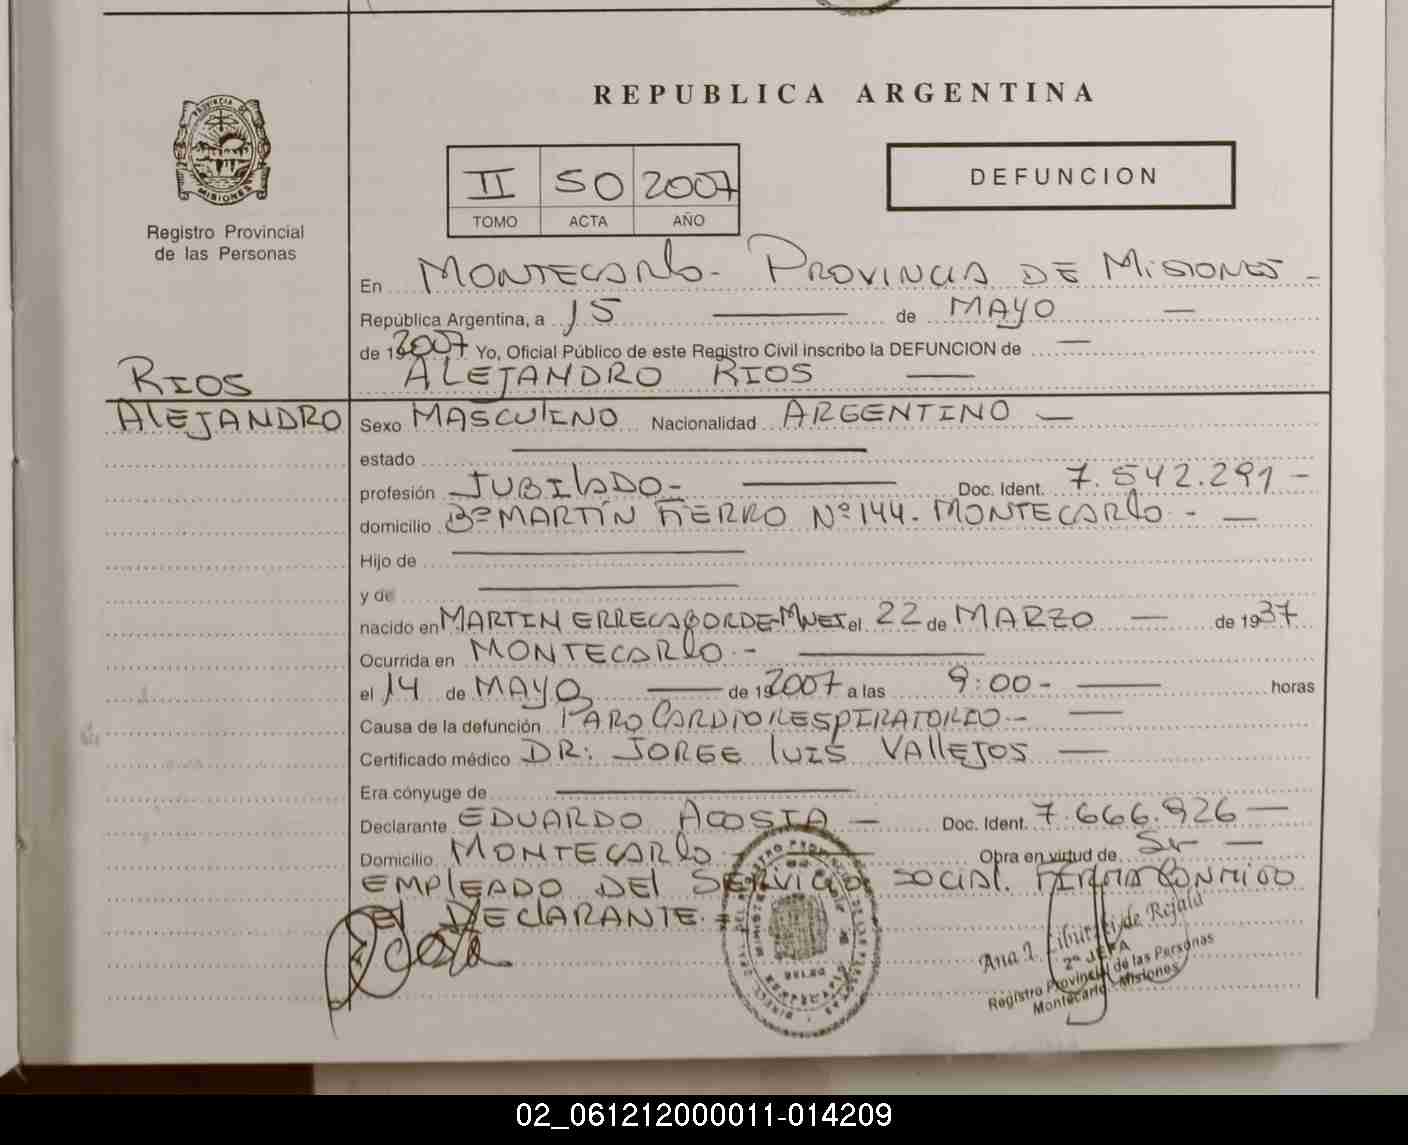 REPUBLICA ARGENTINA
PROVINCIA DE
MISIONES
Registro Provincial
de las Personas
II 50 2007
TOMO ACTA AÑO
DEFUNCION
En MONTECARLO- PROVINCIA DE MISIONES -
República Argentina, a 15 — de MAYO —
de 192007 Yo, Oficial Público de este Registro Civil inscribo la DEFUNCION de —
ALEJANDRO RIOS —
RIOS
ALEJANDRO
Sexo MASCULINO Nacionalidad ARGENTINO —
estado —
profesión JUBILADO- — Doc. Ident. 7.542.291 -
domicilio Bº MARTÍN FIERRO Nº 144. MONTECARLO - —
Hijo de —
y de —
nacido en MARTIN ERRECABORDE-MNES el 22 de MARZO — de 1937
Ocurrida en MONTECARLO - —
el 14 de MAYO — de 192007 a las 9:00- — horas
Causa de la defunción PARO CARDIORESPIRATORIO- —
Certificado médico DR: JORGE LUIS VALLEJOS —
Era cónyuge de —
Declarante EDUARDO ACOSTA — Doc. Ident. 7.666.926 —
Domicilio MONTECARLO — Obra en virtud de Sr —
EMPLEADO DEL SERVICIO SOCIAL. FIRMA CONMIGO
EL DECLARANTE.
Ana I. de Rejala
2ª JEFA
Registro Provincial de las Personas
Montecarlo - Misiones
02_061212000011-014209